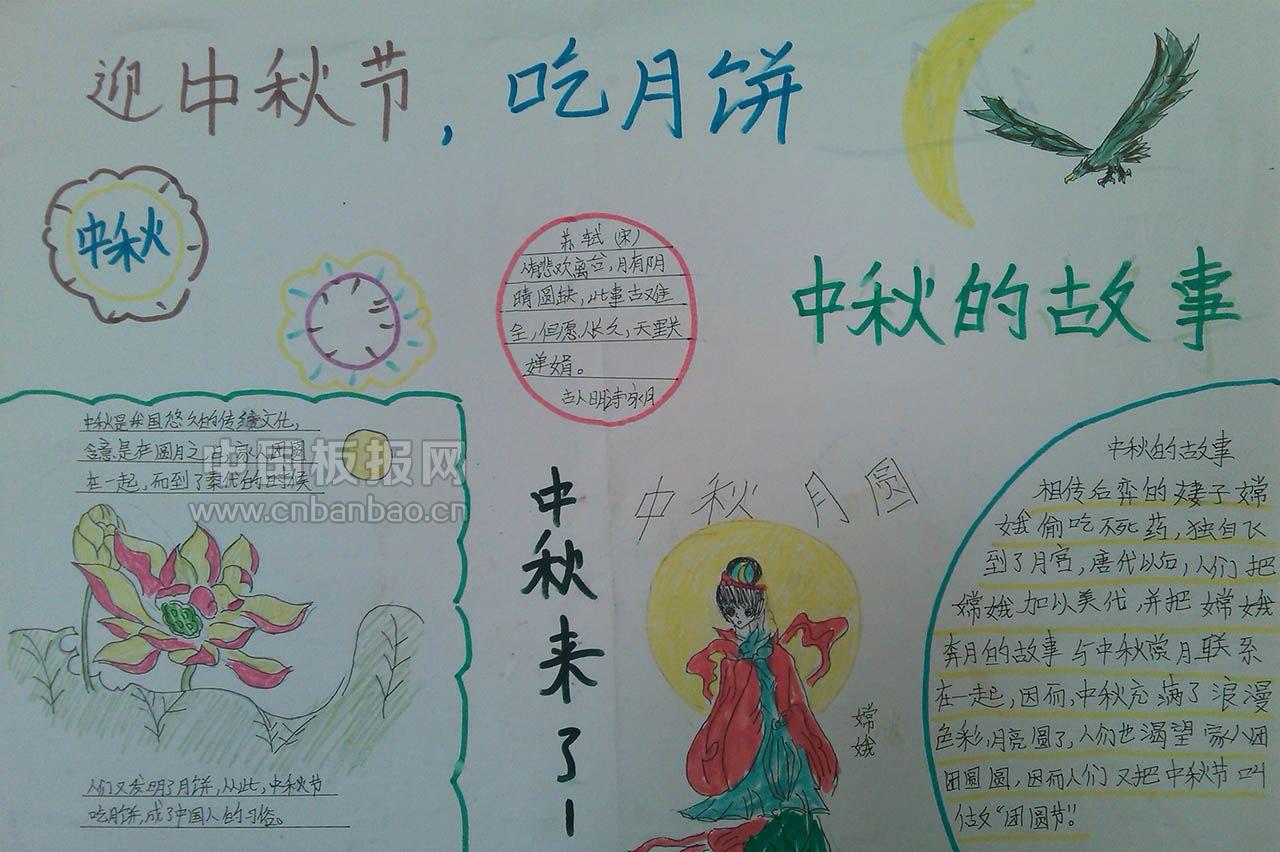 迎中秋节，吃月饼
中秋
苏轼（宋）
人有悲欢离合，月有阴
晴圆缺，此事古难
全，但愿人长久，天里共
婵娟。
古人明诗咏月
中秋的故事
中秋是我国悠久的传统文化，
含意是在圆月之日，家人团圆
在一起，而到了秦代的时候
中国板报网
www.cnbanbao.cn
人们又发明了月饼，从此，中秋节
吃月饼，成了中国人的习俗。
中秋来了！
中秋月圆
嫦娥
中秋的故事
相传后羿的妻子嫦
娥偷吃不死药，独自飞
到了月宫，唐代以后，人们把
嫦娥加以美化，并把嫦娥
奔月的故事与中秋赏月联系
在一起，因而，中秋充满了浪漫
色彩，月亮圆了，人们也渴望家人团
团圆圆，因而人们又把中秋节叫
做“团圆节”。